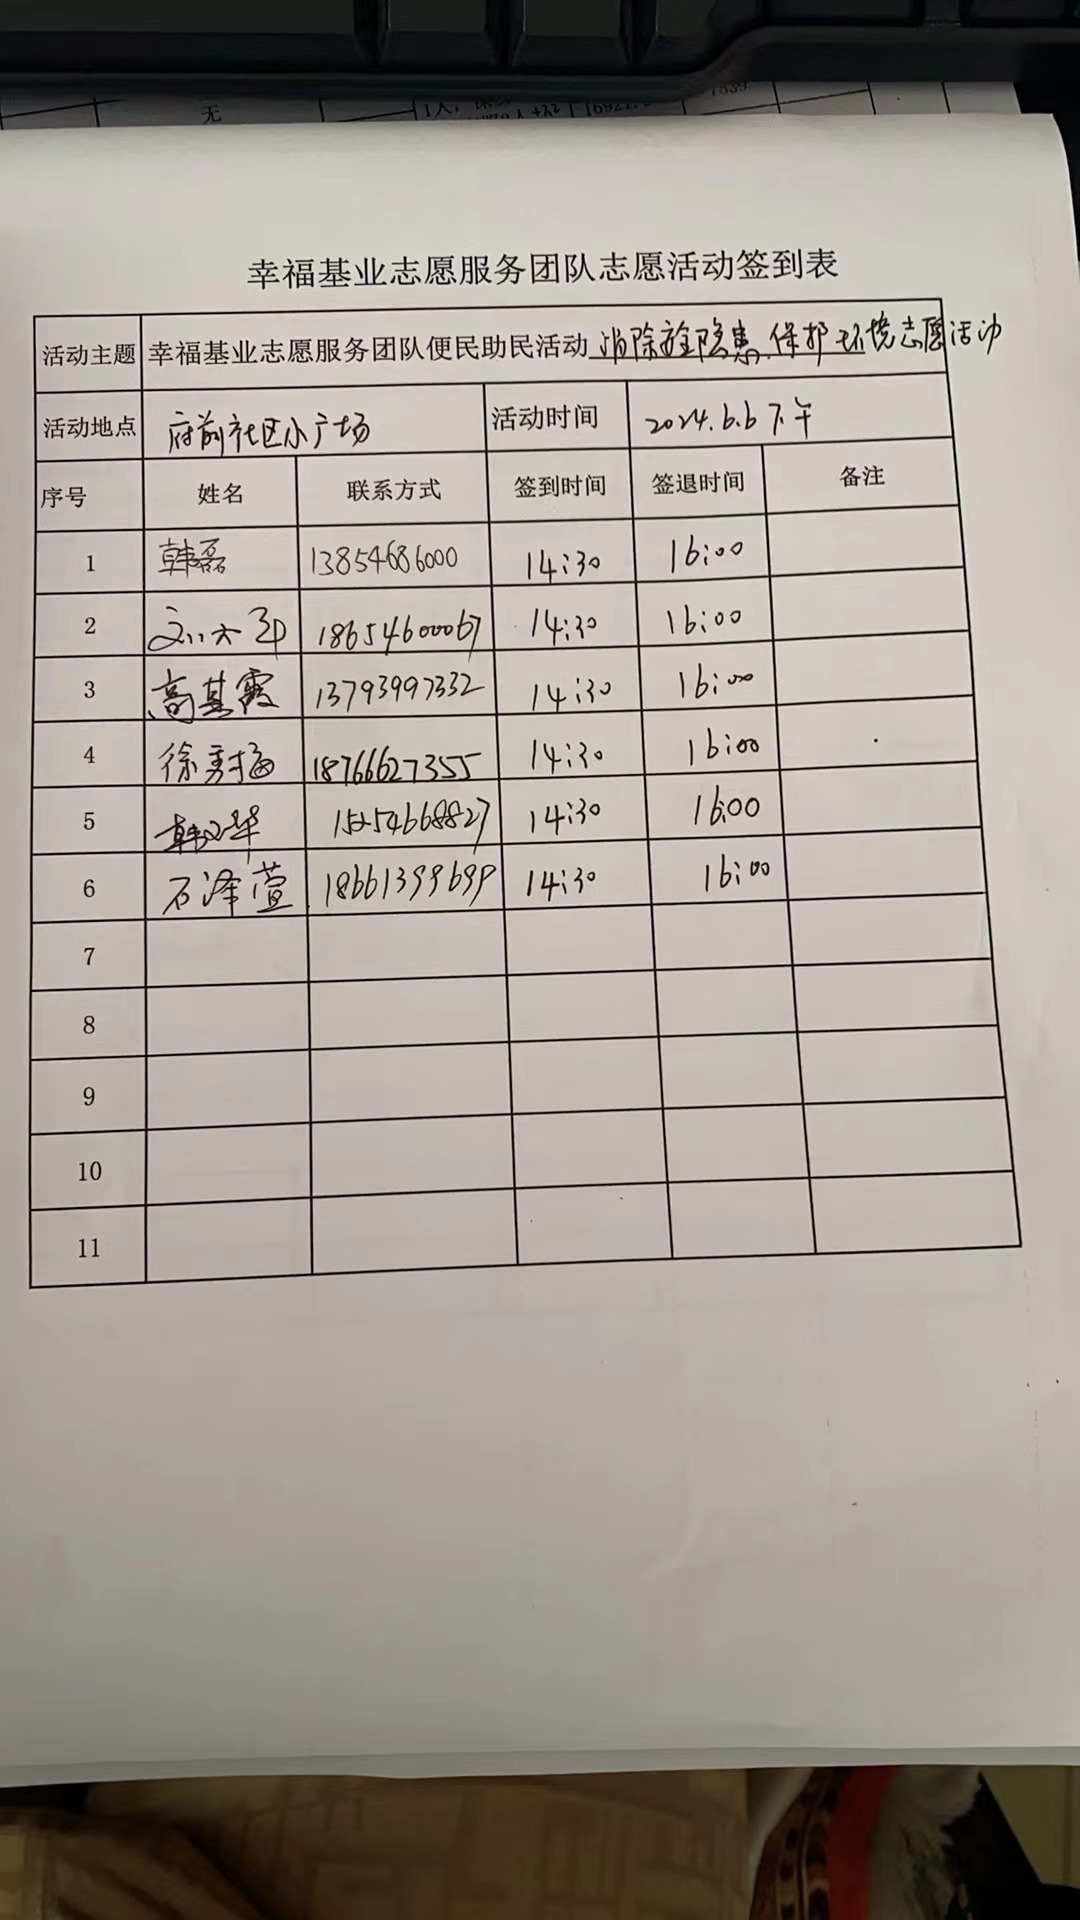 无
1人，
7539
幸福基业志愿服务团队志愿活动签到表
活动主题 幸福基业志愿服务团队便民助民活动 消除安全隐患.保护环境志愿活动
活动地点 府前社区小广场 活动时间 2024.6.6下午
序号 姓名 联系方式 签到时间 签退时间 备注
1 韩磊 13854686000 14:30 16:00
2 18654600067 14:30 16:00
3 高其霞 13793997332 14:30 16:00
4 徐 18766627355 14:30 16:00
5 韩文华 15254668827 14:30 16:00
6 石泽萱 18661399699 14:30 16:00
7
8
9
10
11